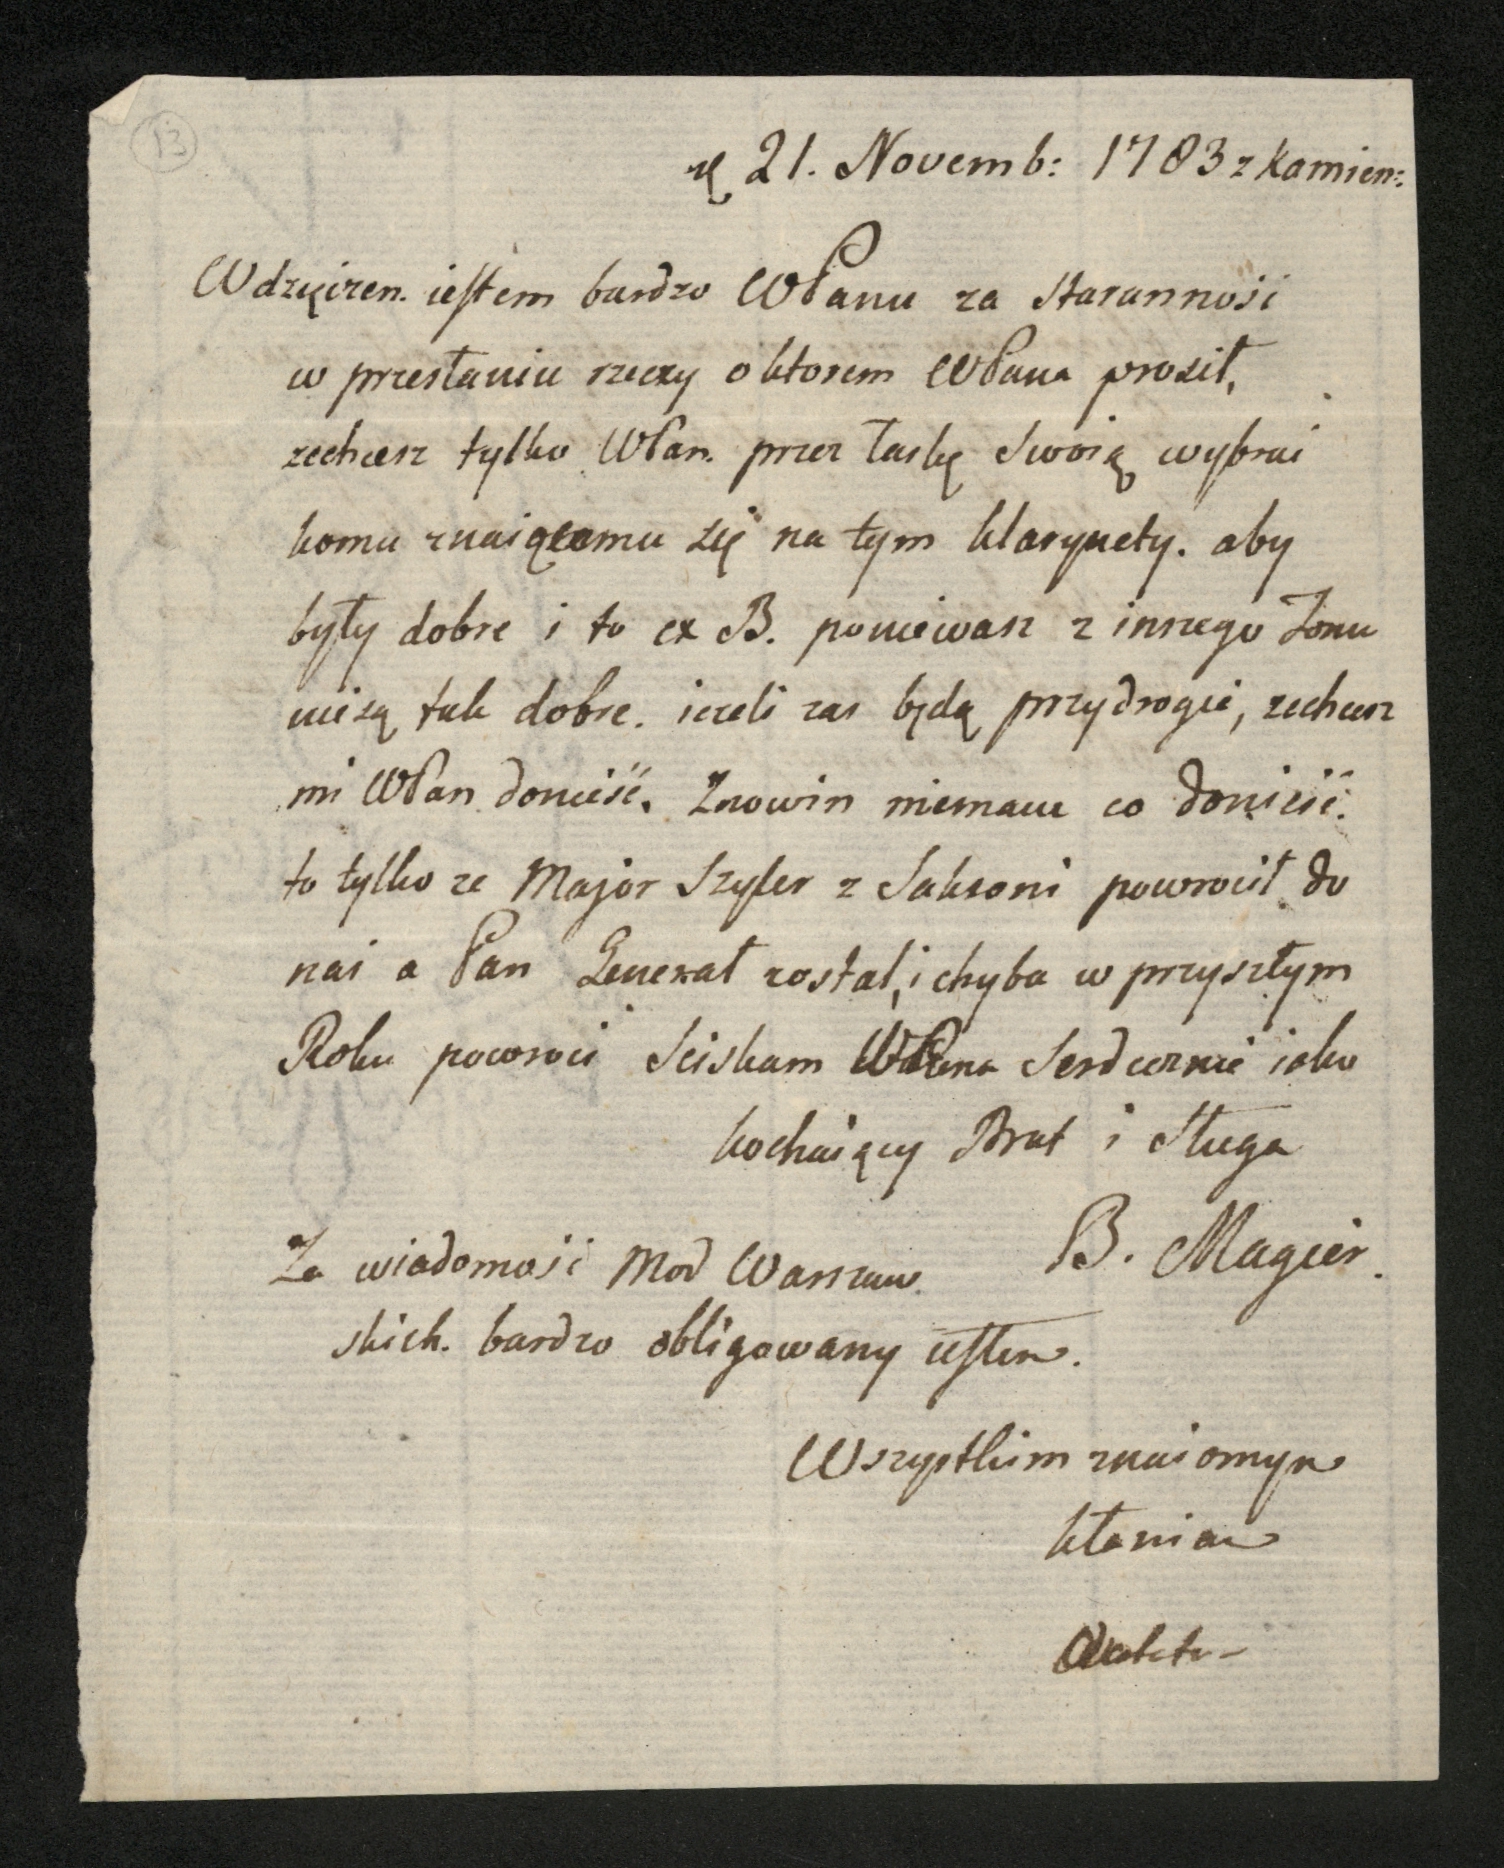 13
21. Novemb: 1783 z Kamien:
Wdzięczen. iestem bardzo WPanu za staranność
w przesłaniu rzeczy o ktorem WPana prosił,
zechcesz tylko WPan. przez łaskę Swoią wybrać
komu znaiącemu się na tym klarynety. aby
były dobre i to ex B. poniewasz z inszego Tonu
niesą tak dobre. ieżeli zas będą przydrogie, zechcesz
mi WPan donieść. Znowin niemam co donieść.
to tylko ze Major Szyler z Saksoni powrocił do
nas a Pan Generał został, i chyba w przyszłym
Roku powroci Sciskam WPana Serdecznie iako
kochaiący Brat i Sługa
B. Magier.
Za wiadomość Mod Warszaw
skich. bardzo obligowany iestem.
Wszystkim znaiomym
kłaniam